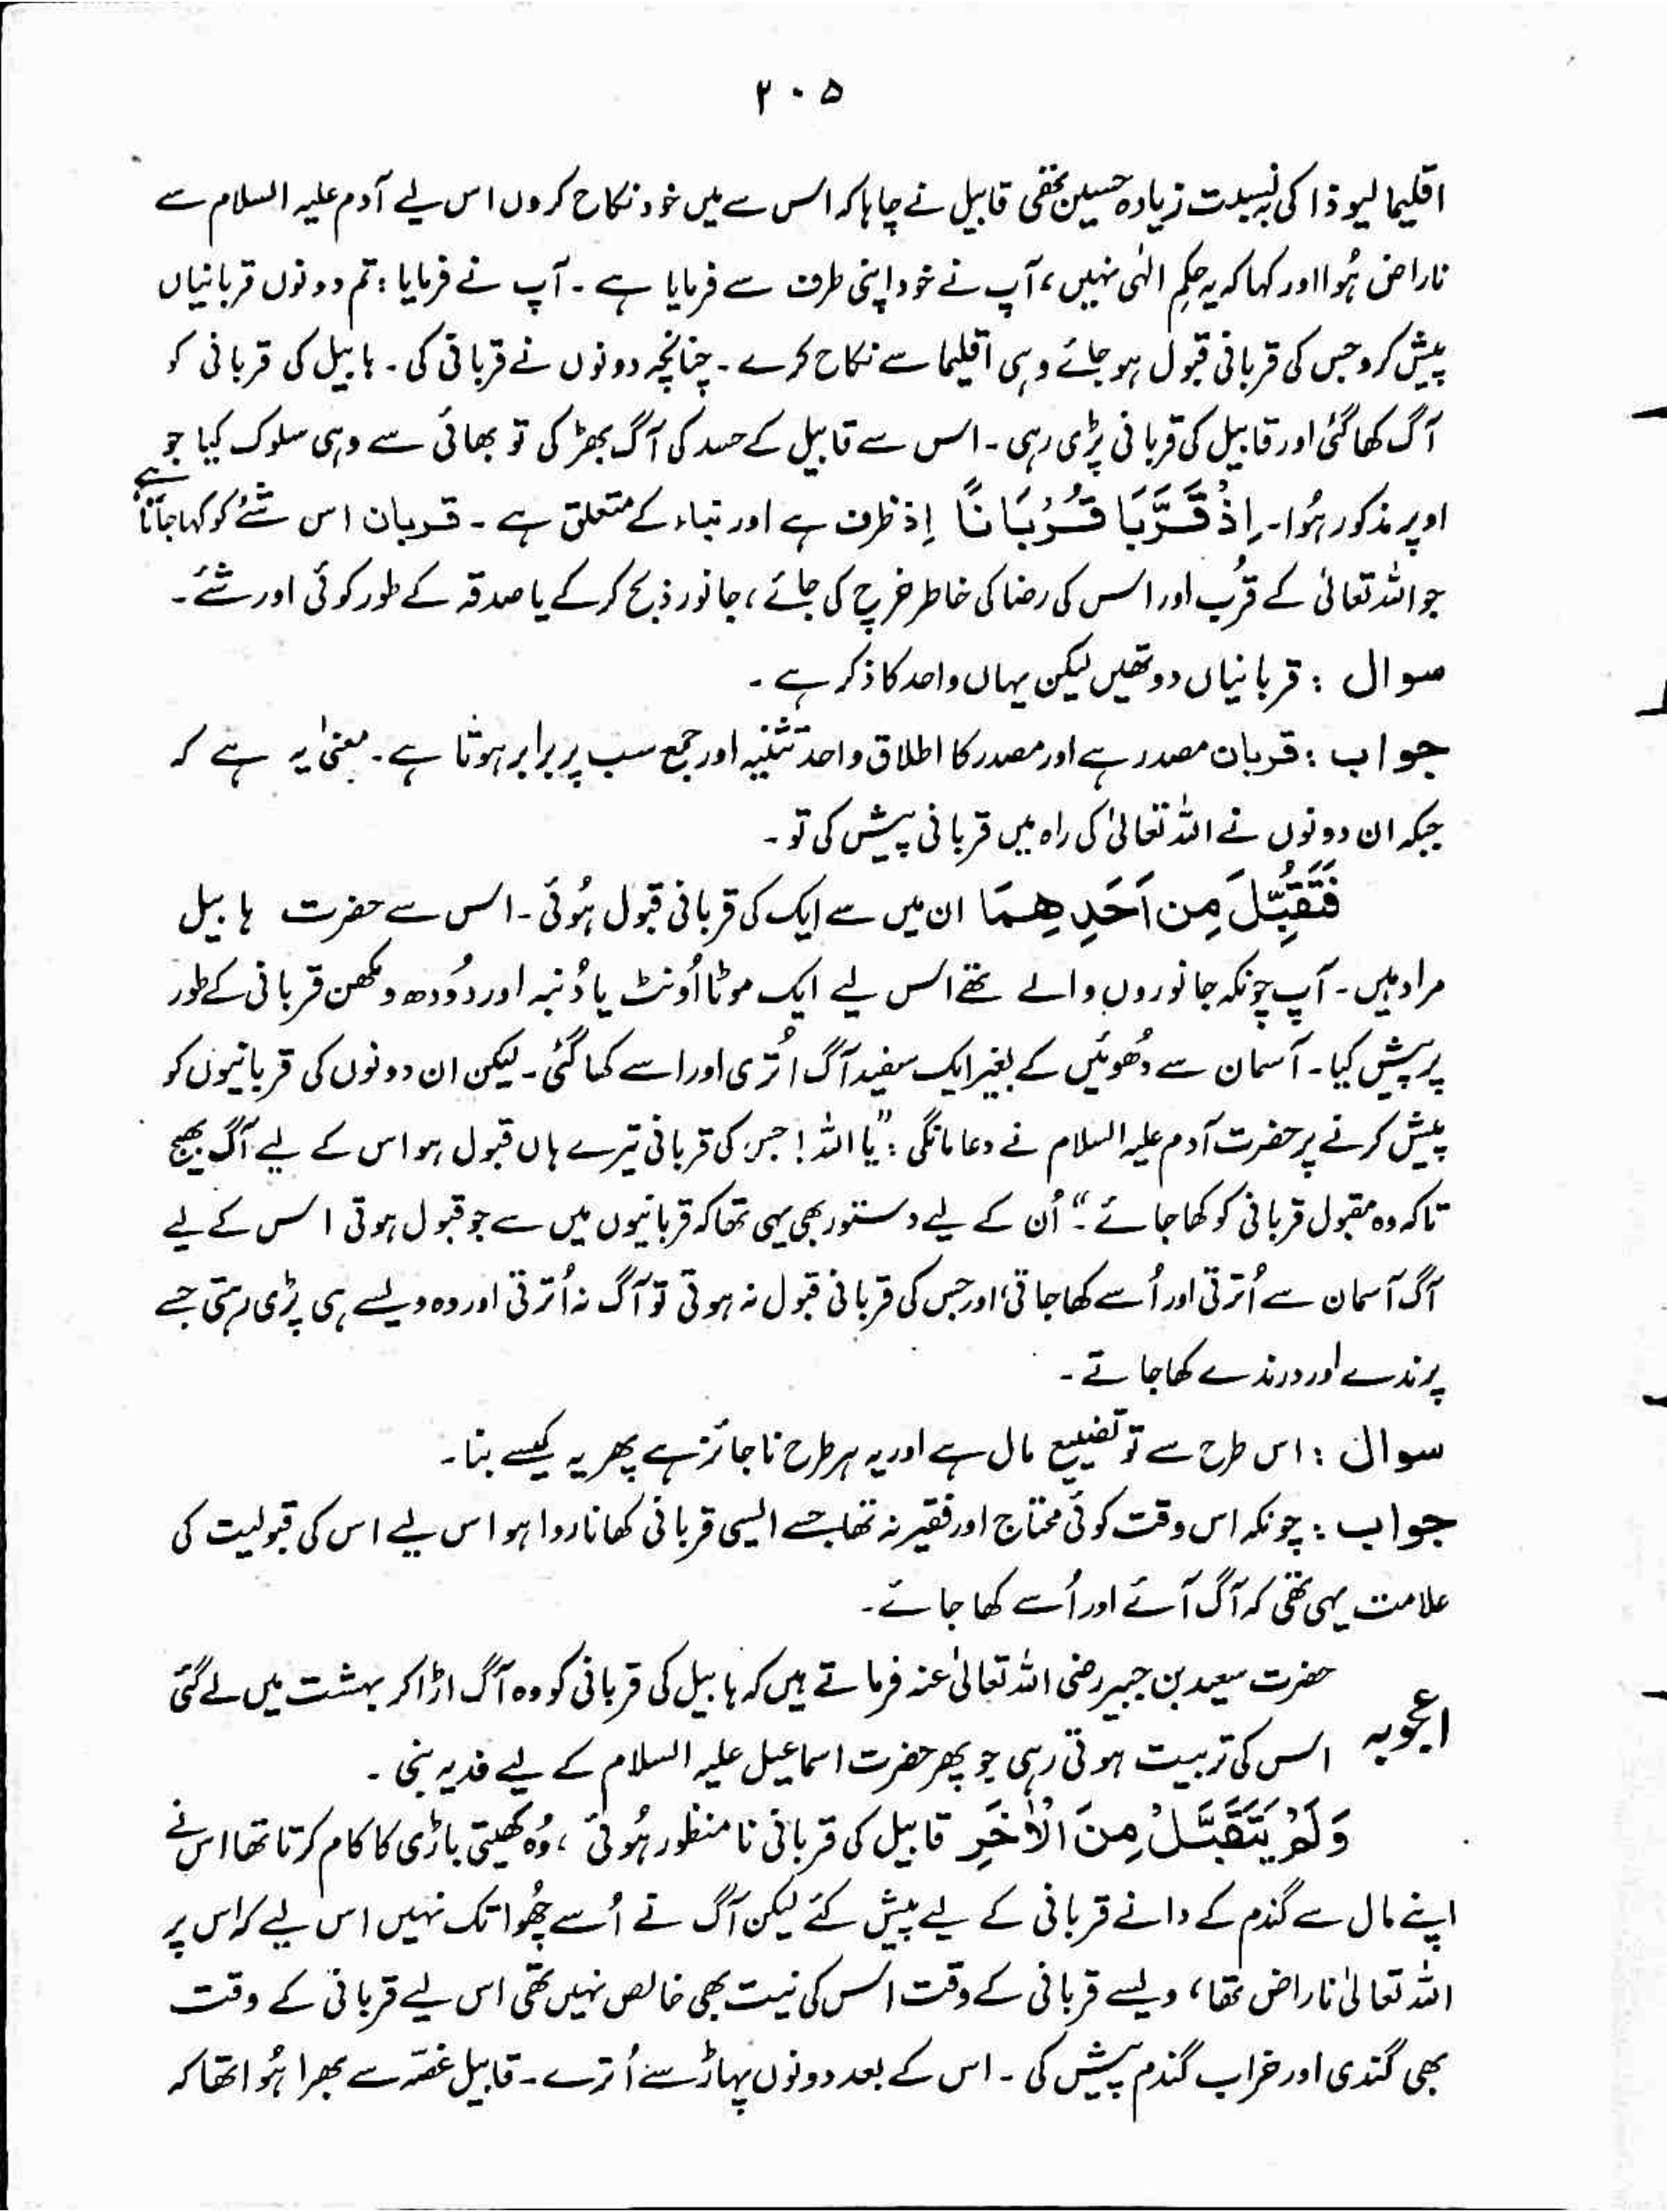 ۲۰۵
اقلیما لیوذا کی بہ نسبت زیادہ حسین تھی قابیل نے چاہا کہ اس سے میں خود نکاح کروں اس لیے آدم علیہ السلام سے
ناراض ہُوا اور کہا کہ یہ حکمِ الٰہی نہیں، آپ نے خود اپنی طرف سے فرمایا ہے۔ آپ نے فرمایا: تم دونوں قربانیاں
پیش کرو جس کی قربانی قبول ہو جائے وہی اقلیما سے نکاح کرے۔ چنانچہ دونوں نے قربانی کی۔ ہابیل کی قربانی کو
آگ کھا گئی اور قابیل کی قربانی پڑی رہی۔ اس سے قابیل کے حسد کی آگ بھڑکی تو بھائی سے وہی سلوک کیا جو
اوپر مذکور ہُوا۔ اِذْ قَرَّبَا قُرْبَانًا اِذ ظرف ہے اور نباء کے متعلق ہے۔ قربان اس شئے کو کہا جاتا ہے
جو اللہ تعالیٰ کے قُرب اور اس کی رضا کی خاطر خرچ کی جائے، جانور ذبح کرکے یا صدقہ کے طور کوئی اور شئے۔
سوال : قربانیاں دو تھیں لیکن یہاں واحد کا ذکر ہے۔
جواب : قربان مصدر ہے اور مصدر کا اطلاق واحد تثنیہ اور جمع سب پر برابر ہوتا ہے۔ معنیٰ یہ ہے کہ
جبکہ ان دونوں نے اللہ تعالیٰ کی راہ میں قربانی پیش کی تو۔
فَتُقُبِّلَ مِن اَحَدِهِمَا ان میں سے ایک کی قربانی قبول ہُوئی۔ اس سے حضرت ہابیل
مراد ہیں۔ آپ چونکہ جانوروں والے تھے اس لیے ایک موٹا اُونٹ یا دُنبہ اور دُودھ و مکھن قربانی کے طور
پر پیش کیا۔ آسمان سے دُھوئیں کے بغیر ایک سفید آگ اُتری اور اسے کھا گئی۔ لیکن ان دونوں کی قربانیوں کو
پیش کرنے پر حضرت آدم علیہ السلام نے دعا مانگی : ”یا اللہ! جس کی قربانی تیرے ہاں قبول ہو اس کے لیے آگ بھیج
تاکہ وہ مقبول قربانی کو کھا جائے۔“ اُن کے لیے دستور بھی یہی تھا کہ قربانیوں میں سے جو قبول ہوتی اس کے لیے
آگ آسمان سے اُترتی اور اُسے کھا جاتی، اور جس کی قربانی قبول نہ ہوتی تو آگ نہ اُترتی اور وہ ویسے ہی پڑی رہتی جسے
پرندے اور درندے کھا جاتے۔
سوال : اس طرح سے تو تضییع مال ہے اور یہ ہر طرح ناجائز ہے پھر یہ کیسے بنا۔
جواب : چونکہ اس وقت کوئی محتاج اور فقیر نہ تھا جسے ایسی قربانی کھانا روا ہو اس لیے اس کی قبولیت کی
علامت یہی تھی کہ آگ آئے اور اُسے کھا جائے۔
حضرت سعید بن جبیر رضی اللہ تعالیٰ عنہ فرماتے ہیں کہ ہابیل کی قربانی کو وہ آگ اڑا کر بہشت میں لے گئی
اعجوبہ اس کی تربیت ہوتی رہی جو پھر حضرت اسماعیل علیہ السلام کے لیے فدیہ بنی۔
وَلَمْ يُتَقَبَّلْ مِنَ الْاٰخَرِ قابیل کی قربانی نامنظور ہُوئی، وُہ کھیتی باڑی کا کام کرتا تھا اس نے
اپنے مال سے گندم کے دانے قربانی کے لیے پیش کئے لیکن آگ نے اُسے چُھوا تک نہیں اس لیے کہ اس پر
اللہ تعالیٰ ناراض تھا، ویسے قربانی کے وقت اس کی نیت بھی خالص نہیں تھی اس لیے قربانی کے وقت
بھی گندی اور خراب گندم پیش کی۔ اس کے بعد دونوں پہاڑ سے اُترے۔ قابیل غصّہ سے بھرا ہُوا تھا کہ